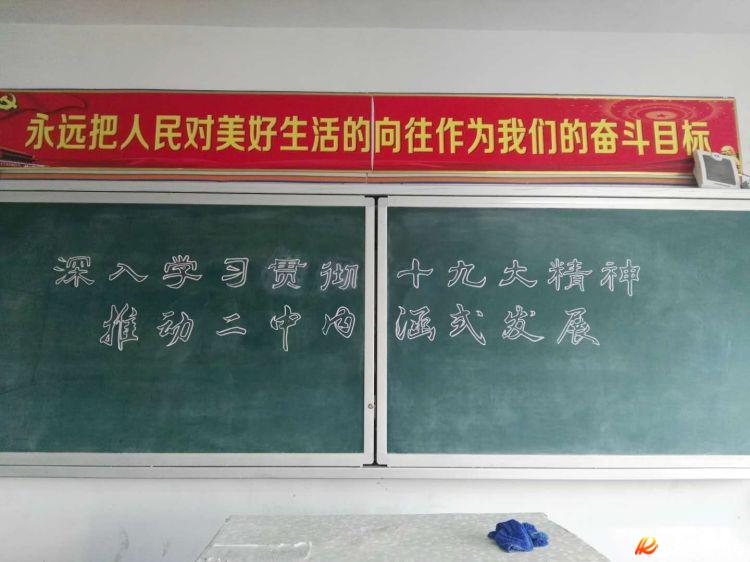 永远把人民对美好生活的向往作为我们的奋斗目标
深入学习贯彻十九大精神
推动二中内涵式发展